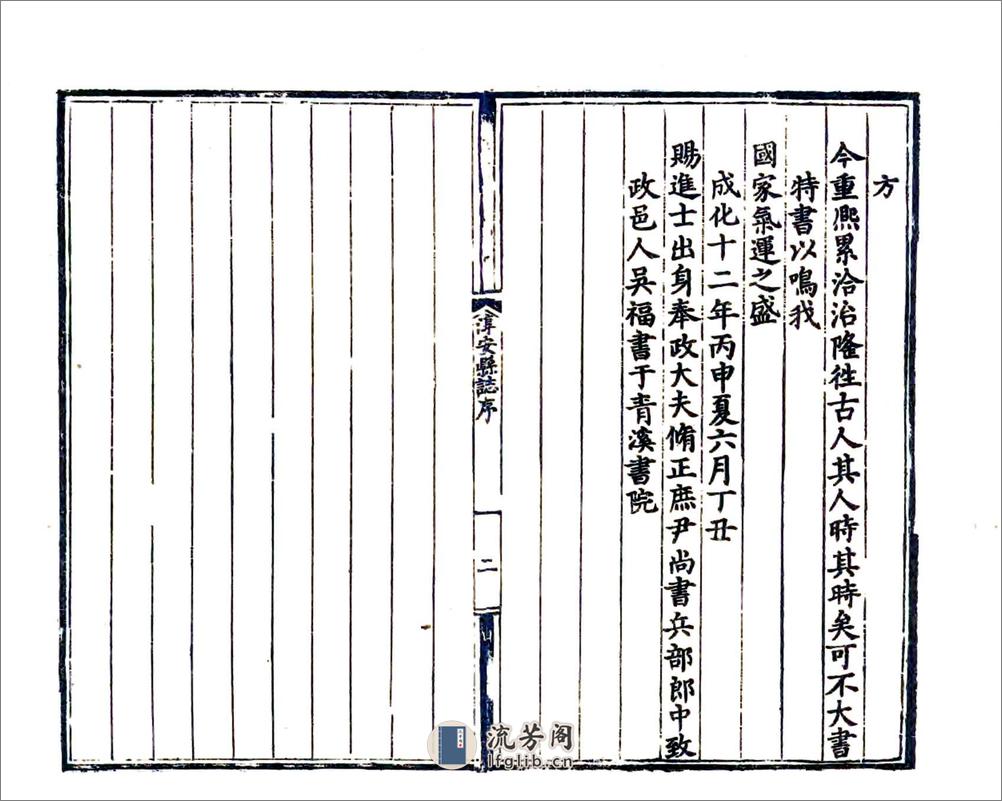 方
今重熈累洽治隆徃古人其人時其時矣可不大書
特書以鳴我
國家氣運之盛
成化十二年丙申夏六月丁丑
賜進士出身奉政大夫脩正庶尹尚書兵部郎中致
政邑人吳福書于青溪書院
淳安縣誌序
二
流芳阁
lfglib.cn